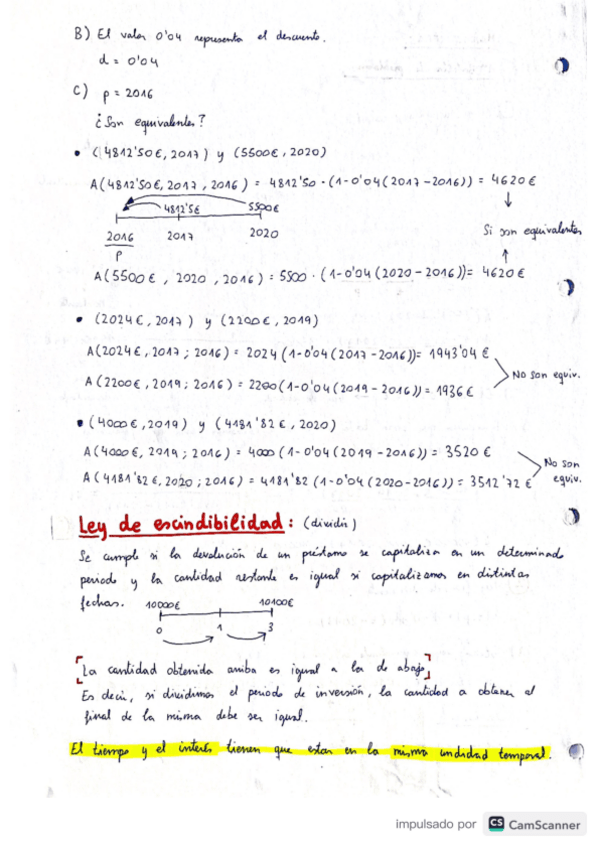 B) El valor 0'04 representa el descuento.
d = 0'04
C) p = 2016
¿Son equivalentes?
• (4812'50€, 2017) y (5500€, 2020)
A(4812'50€, 2017, 2016) = 4812'50 · (1-0'04(2017-2016)) = 4620€
4812'5€ 5500€
2016 2017 2020
P
Si son equivalentes
A(5500€, 2020, 2016) = 5500 · (1-0'04(2020-2016)) = 4620€
• (2024€, 2017) y (2200€, 2019)
A(2024€, 2017; 2016) = 2024(1-0'04(2017-2016)) = 1943'04€
No son equiv.
A(2200€, 2019; 2016) = 2200(1-0'04(2019-2016)) = 1936€
• (4000€, 2019) y (4181'82€, 2020)
A(4000€, 2019; 2016) = 4000(1-0'04(2019-2016)) = 3520€
No son equiv.
A(4181'82€, 2020; 2016) = 4181'82(1-0'04(2020-2016)) = 3512'72€
Ley de escindibilidad: (dividir)
Se cumple si la devolución de un préstamo se capitaliza en un determinado
periodo y la cantidad restante es igual si capitalizamos en distintas
fechas. 10000€ 10100€
0 1 3
[La cantidad obtenida arriba es igual a la de abajo]
Es decir, si dividimos el periodo de inversión, la cantidad a obtener al
final de la misma debe ser igual.
El tiempo y el interés tienen que estar en la misma undidad temporal.
impulsado por CS CamScanner